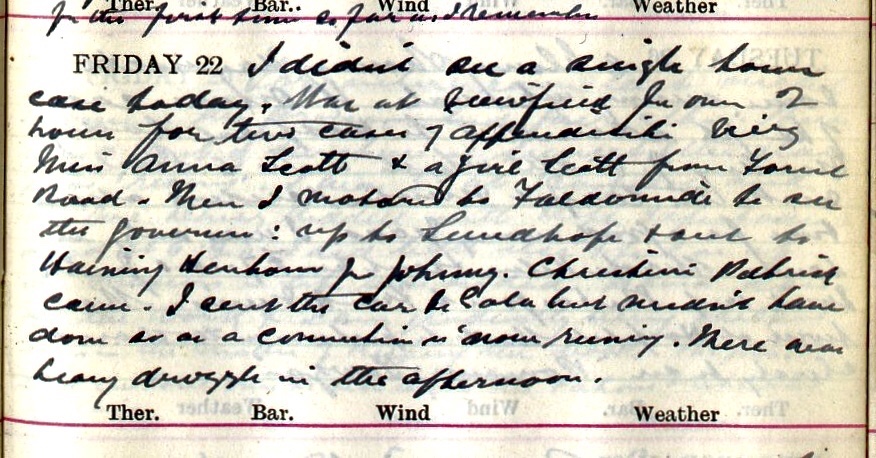 Ther. Bar.. Wind Weather
for the first time so far as I remember
FRIDAY 22 I didn't see a single town
case today. Was at for over 2
hours for two cases of appendicitis being
Miss Anna Scott & a girl Scott from
Road. Then I motored to to see
the governor: up to Sundhope & out to
Haining for Johnny. Christina
came. I sent the car to but needn't have
done so as a connection is now running. There was
heavy in the afternoon.
Ther. Bar. Wind Weather